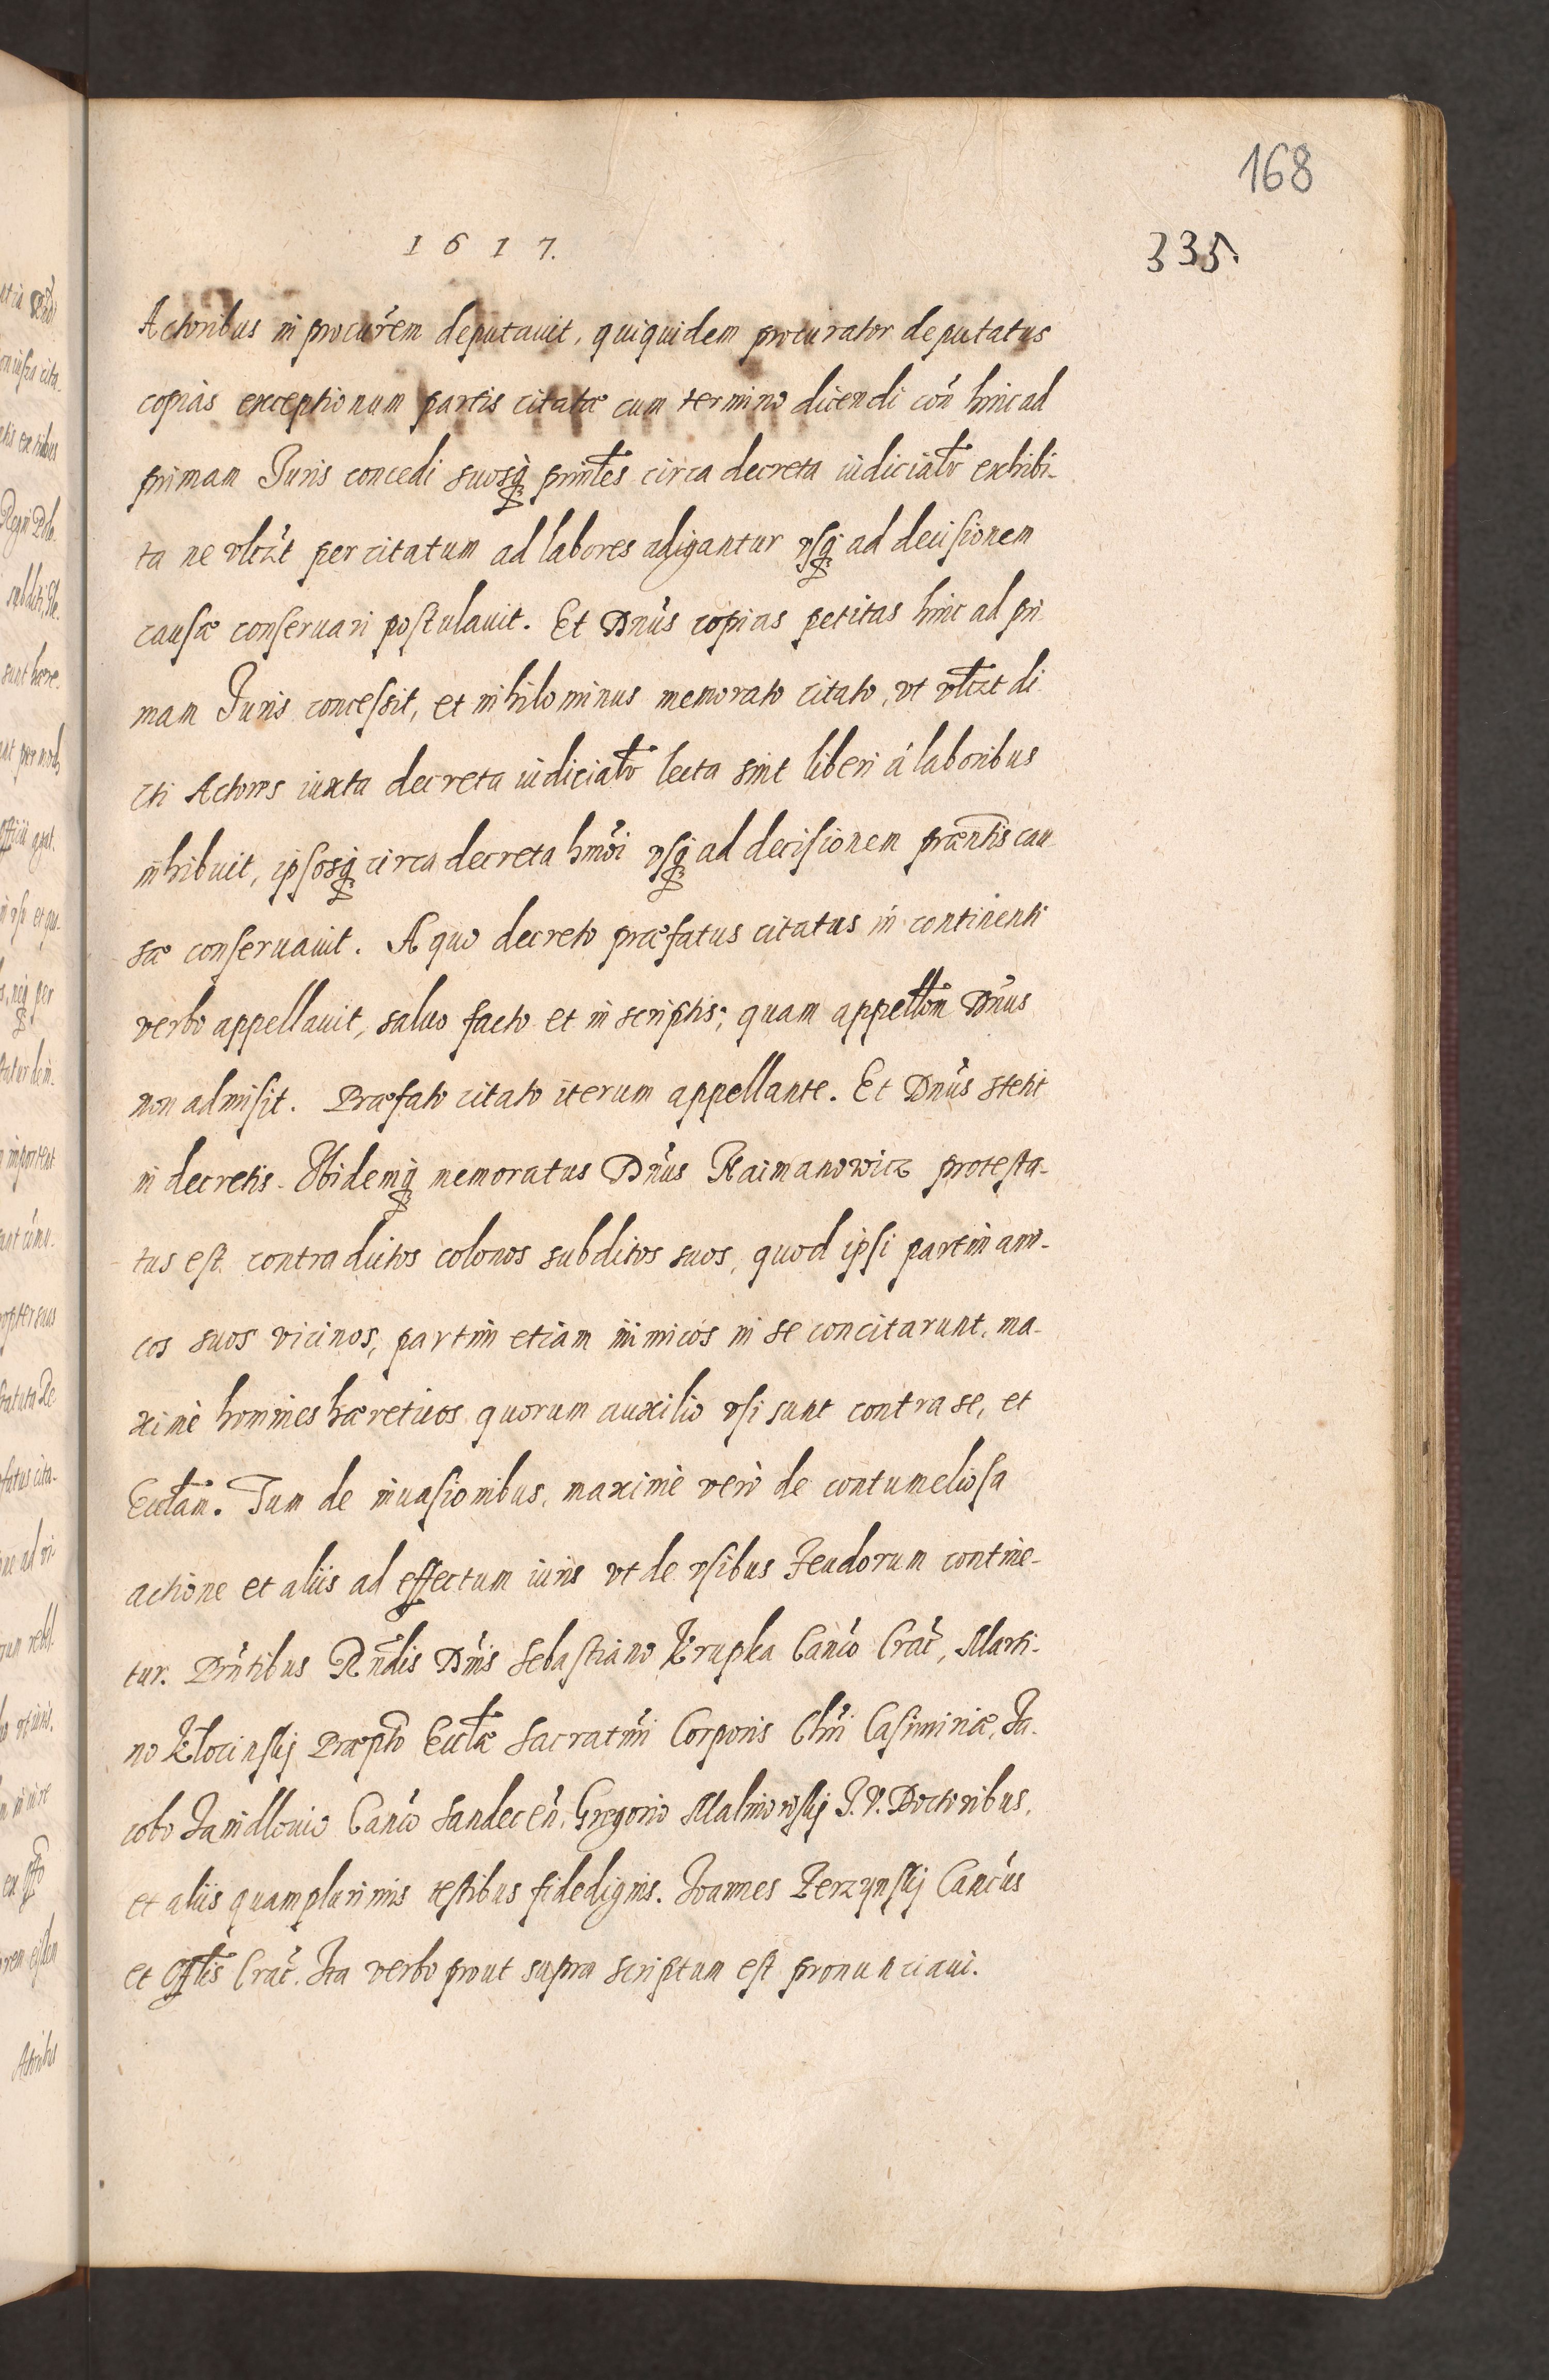 168
335.
1617.
Actoribus in procurem deputauit, quiquidem procurator deputatus
copias exceptionum partis citatæ cum termino dicendi con hinc ad
primam Juris concedi suosq printes circa decreta iudicialr exhibi-
ta ne vltrt per citatum ad labores adigantur vsq ad decisionem
causæ conseruari postulauit. Et Dnus copias petitas hinc ad pri-
mam Juris concessit, et nihilominus memorato citato, vt vltrt di
cti Actores iuxta decreta iudicialr lecta sint liberi à laboribus
inhibuit, ipsosq circa decreta hmoi vsq ad decisionem præntis cau
sæ conseruauit. A quo decreto præfatus citatus in continenti
verbo appellauit, saluo facto et in scriptis; quam appellom Dnus
non admisit. Præfato citato iterum appellante. Et Dnus stetit
in decretis. Ibidemq memoratus Dnus Naimanowicz protesta-
tus est contra dictos colonos subditos suos, quod ipsi partim ami-
cos suos vicinos, partim etiam inimicos in se concitarunt, ma-
ximè homines hæreticos quorum auxilio vsi sunt contra se, et
Ecclam. Tum de inuasionibus, maximè verò de contumeliosa
actione et aliis ad effectum iuris vt de vsibus feudorum contine-
tur. Prntibus Rndis Dnis Sebastiano Krupka Canco Crac, Marti-
no Klocinskj Præpto Ecclæ Sacratmi Corporis Chri Casimiriæ, Ja-
cobo Janidlouio Canco Sandecen, Gregorio Malinowskj J. V. Doctoribus,
et aliis quamplurimis testibus fidedignis. Joannes Ferzynskj Cancus
et Offlis Crac. Ita verbo prout supra scriptum est pronunciaui.